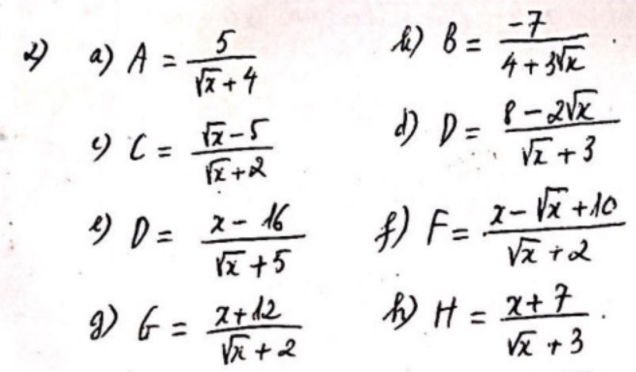 2) a) A = 5/(√x + 4) b) B = -7/(4 + 3√x).
c) C = (√x - 5)/(√x + 2) d) D = (8 - 2√x)/(√x + 3)
e) D = (x - 16)/(√x + 5) f) F = (x - √x + 10)/(√x + 2)
g) G = (x + 12)/(√x + 2) h) H = (x + 7)/(√x + 3).